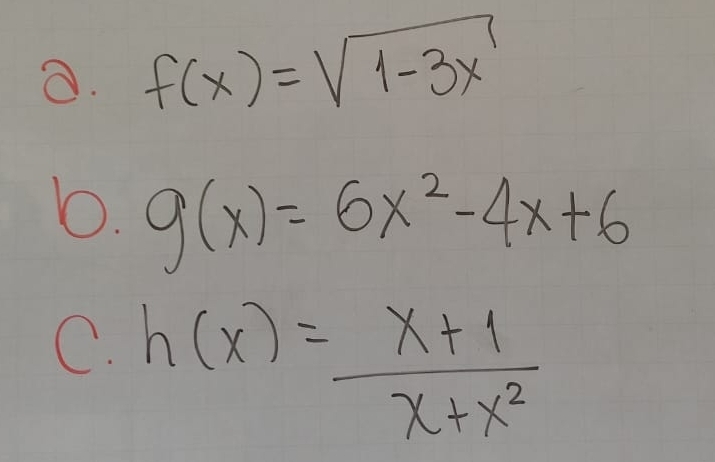 a. f(x)=√(1-3x)
b. g(x)= 6x²-4x+6
c. h(x) = (x+1)/(x+x²)